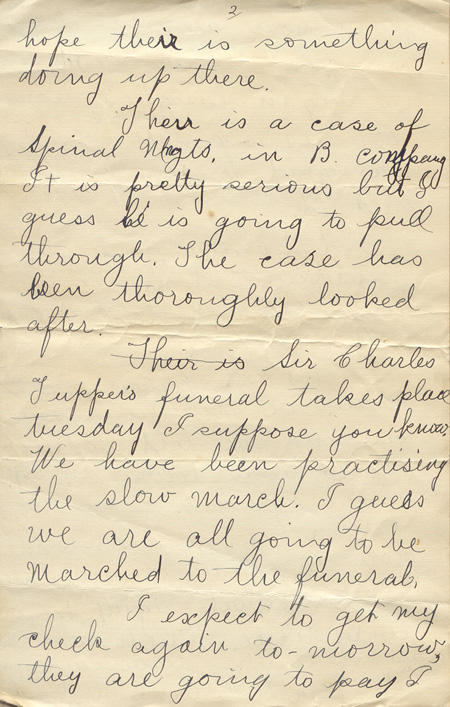 2
hope their is something
doing up there.
Their is a case of
Spinal Mngts, in B. company
It is pretty serious but I
guess he is going to pull
through. The case has
been thoroughly looked
after.
Their is Sir Charles
Tupper's funeral takes place
tuesday I suppose you know.
We have been practising
the slow march. I guess
we are all going to be
marched to the funeral.
I expect to get my
check again to-morrow,
they are going to pay I